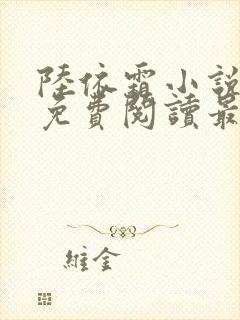 陸依霜小說
免費閱讀最
維金